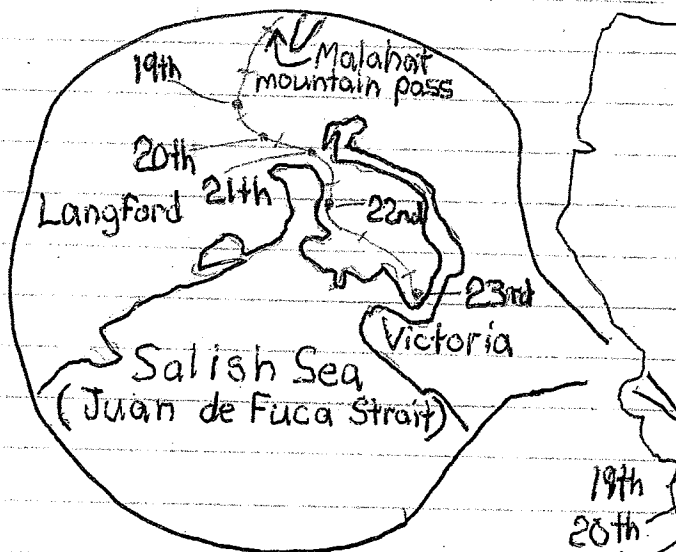 Malahat
mountain pass
19th
20th
21th
22nd
Langford
23rd
Victoria
Salish Sea
(Juan de Fuca Strait)
19th
20th